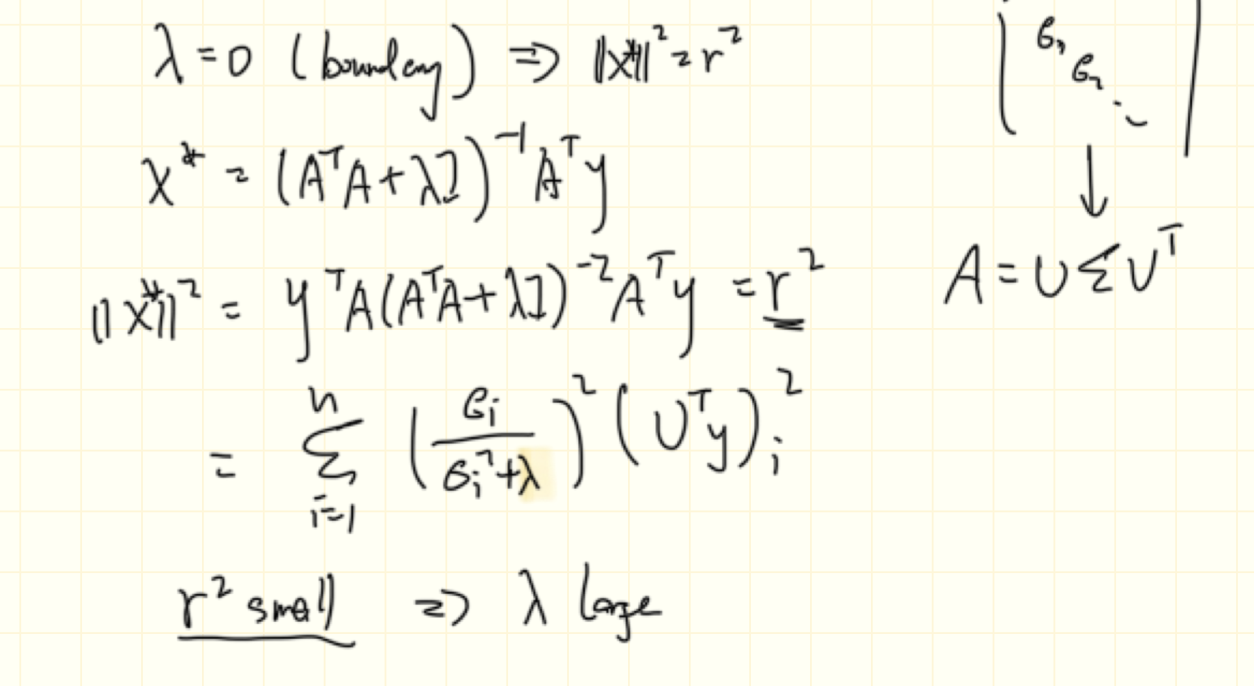 λ = 0 (boundary) ⇒ ||x*||² = r²
x* = (AᵀA + λI)⁻¹ Aᵀy
||x*||² = yᵀA(AᵀA + λI)⁻² Aᵀy = r²
= Σᵢ₌₁ⁿ (σᵢ / (σᵢ² + λ))² (Uᵀy)ᵢ²
r² small ⇒ λ large
σ₁
σ₂
⋱
↓
A = UΣUᵀ